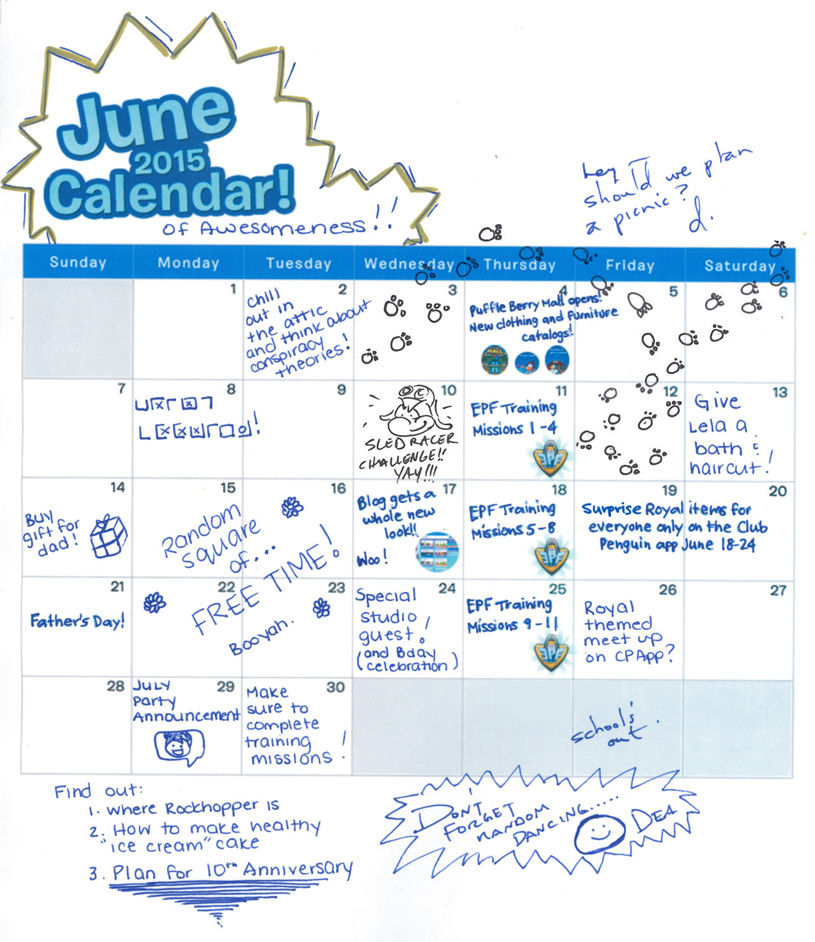 June
2015
Calendar!
of Awesomeness!!
hey
should we plan
a picnic?
d.
Sunday Monday Tuesday Wednesday Thursday Friday Saturday
1
2
Chill
out in
the attic
and think about
conspiracy
theories!
3
4
Puffle Berry Mall opens!
New clothing and Furniture
catalogs!
MALL
5
6
7
8
9
10
SLED RACER
CHALLENGE!!
YAY!!!
11
EPF Training
Missions 1-4
EPF
12
13
Give
Lela a
bath &
haircut!
14
Buy
gift for
dad!
15
16
Random
square
of...
FREE TIME!
Booyah.
17
Blog gets a
whole new
look!!
Woo!
18
EPF Training
Missions 5-8
EPF
19
20
Surprise Royal items for
everyone only on the Club
Penguin app June 18-24
21
Father's Day!
22
23
24
Special
Studio
guest!
(and Bday
celebration)
25
EPF Training
Missions 9-11
EPF
26
Royal
themed
meet up
on CPApp?
27
28
29
July
Party
Announcement
30
Make
sure to
complete
training
missions!
school's
out.
Find out:
1. where Rockhopper is
2. How to make healthy
"ice cream" cake
3. Plan for 10th Anniversary
DON'T
FORGET
RANDOM
DANCING.....
DEA